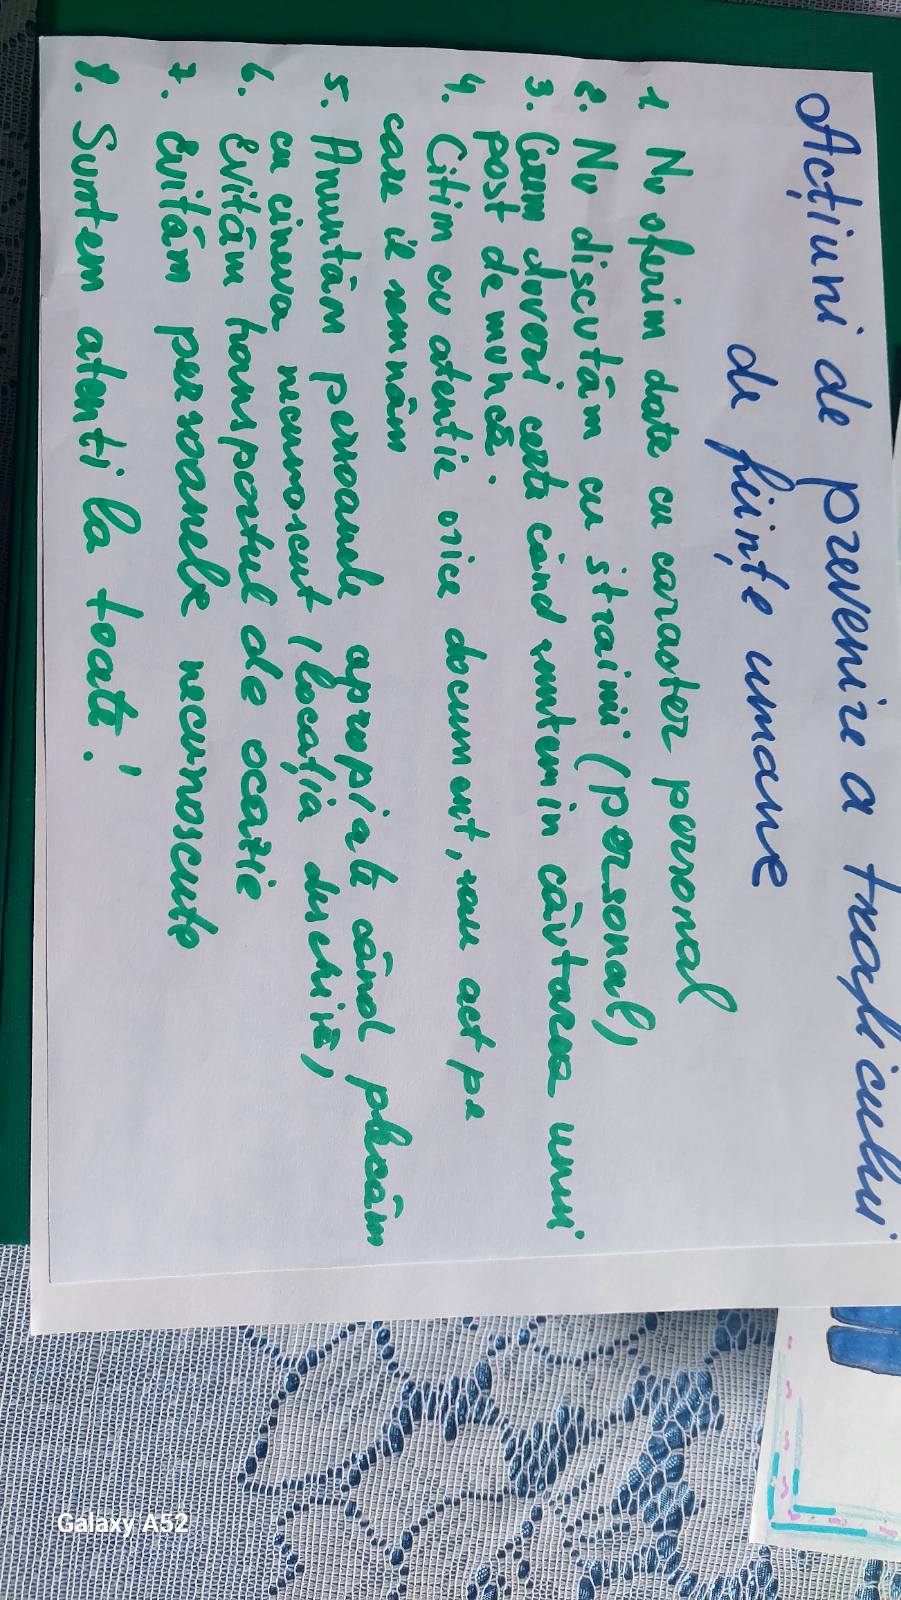 Acțiuni de prevenire a traficului
de ființe umane
1 Nu oferim date cu caracter personal
2. Nu discutăm cu straini (personal)
3. Cerem dovezi certe când suntem in căutarea unui
post de muncă.
4. Citim cu atentie orice document, sau act pe
care il semnăm
5. Anuntăm persoanele apropiate când plecăm
cu cineva necunoscut (locația deschisă)
6. Evităm transportul de ocazie
7. Evităm persoanele necunoscute
8. Suntem atenti la toate!
Galaxy A52